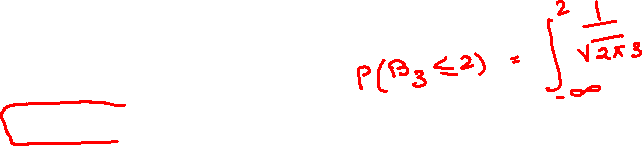 P(B₃ ≤ 2) = ∫_{-∞}^{2} 1/√2π3